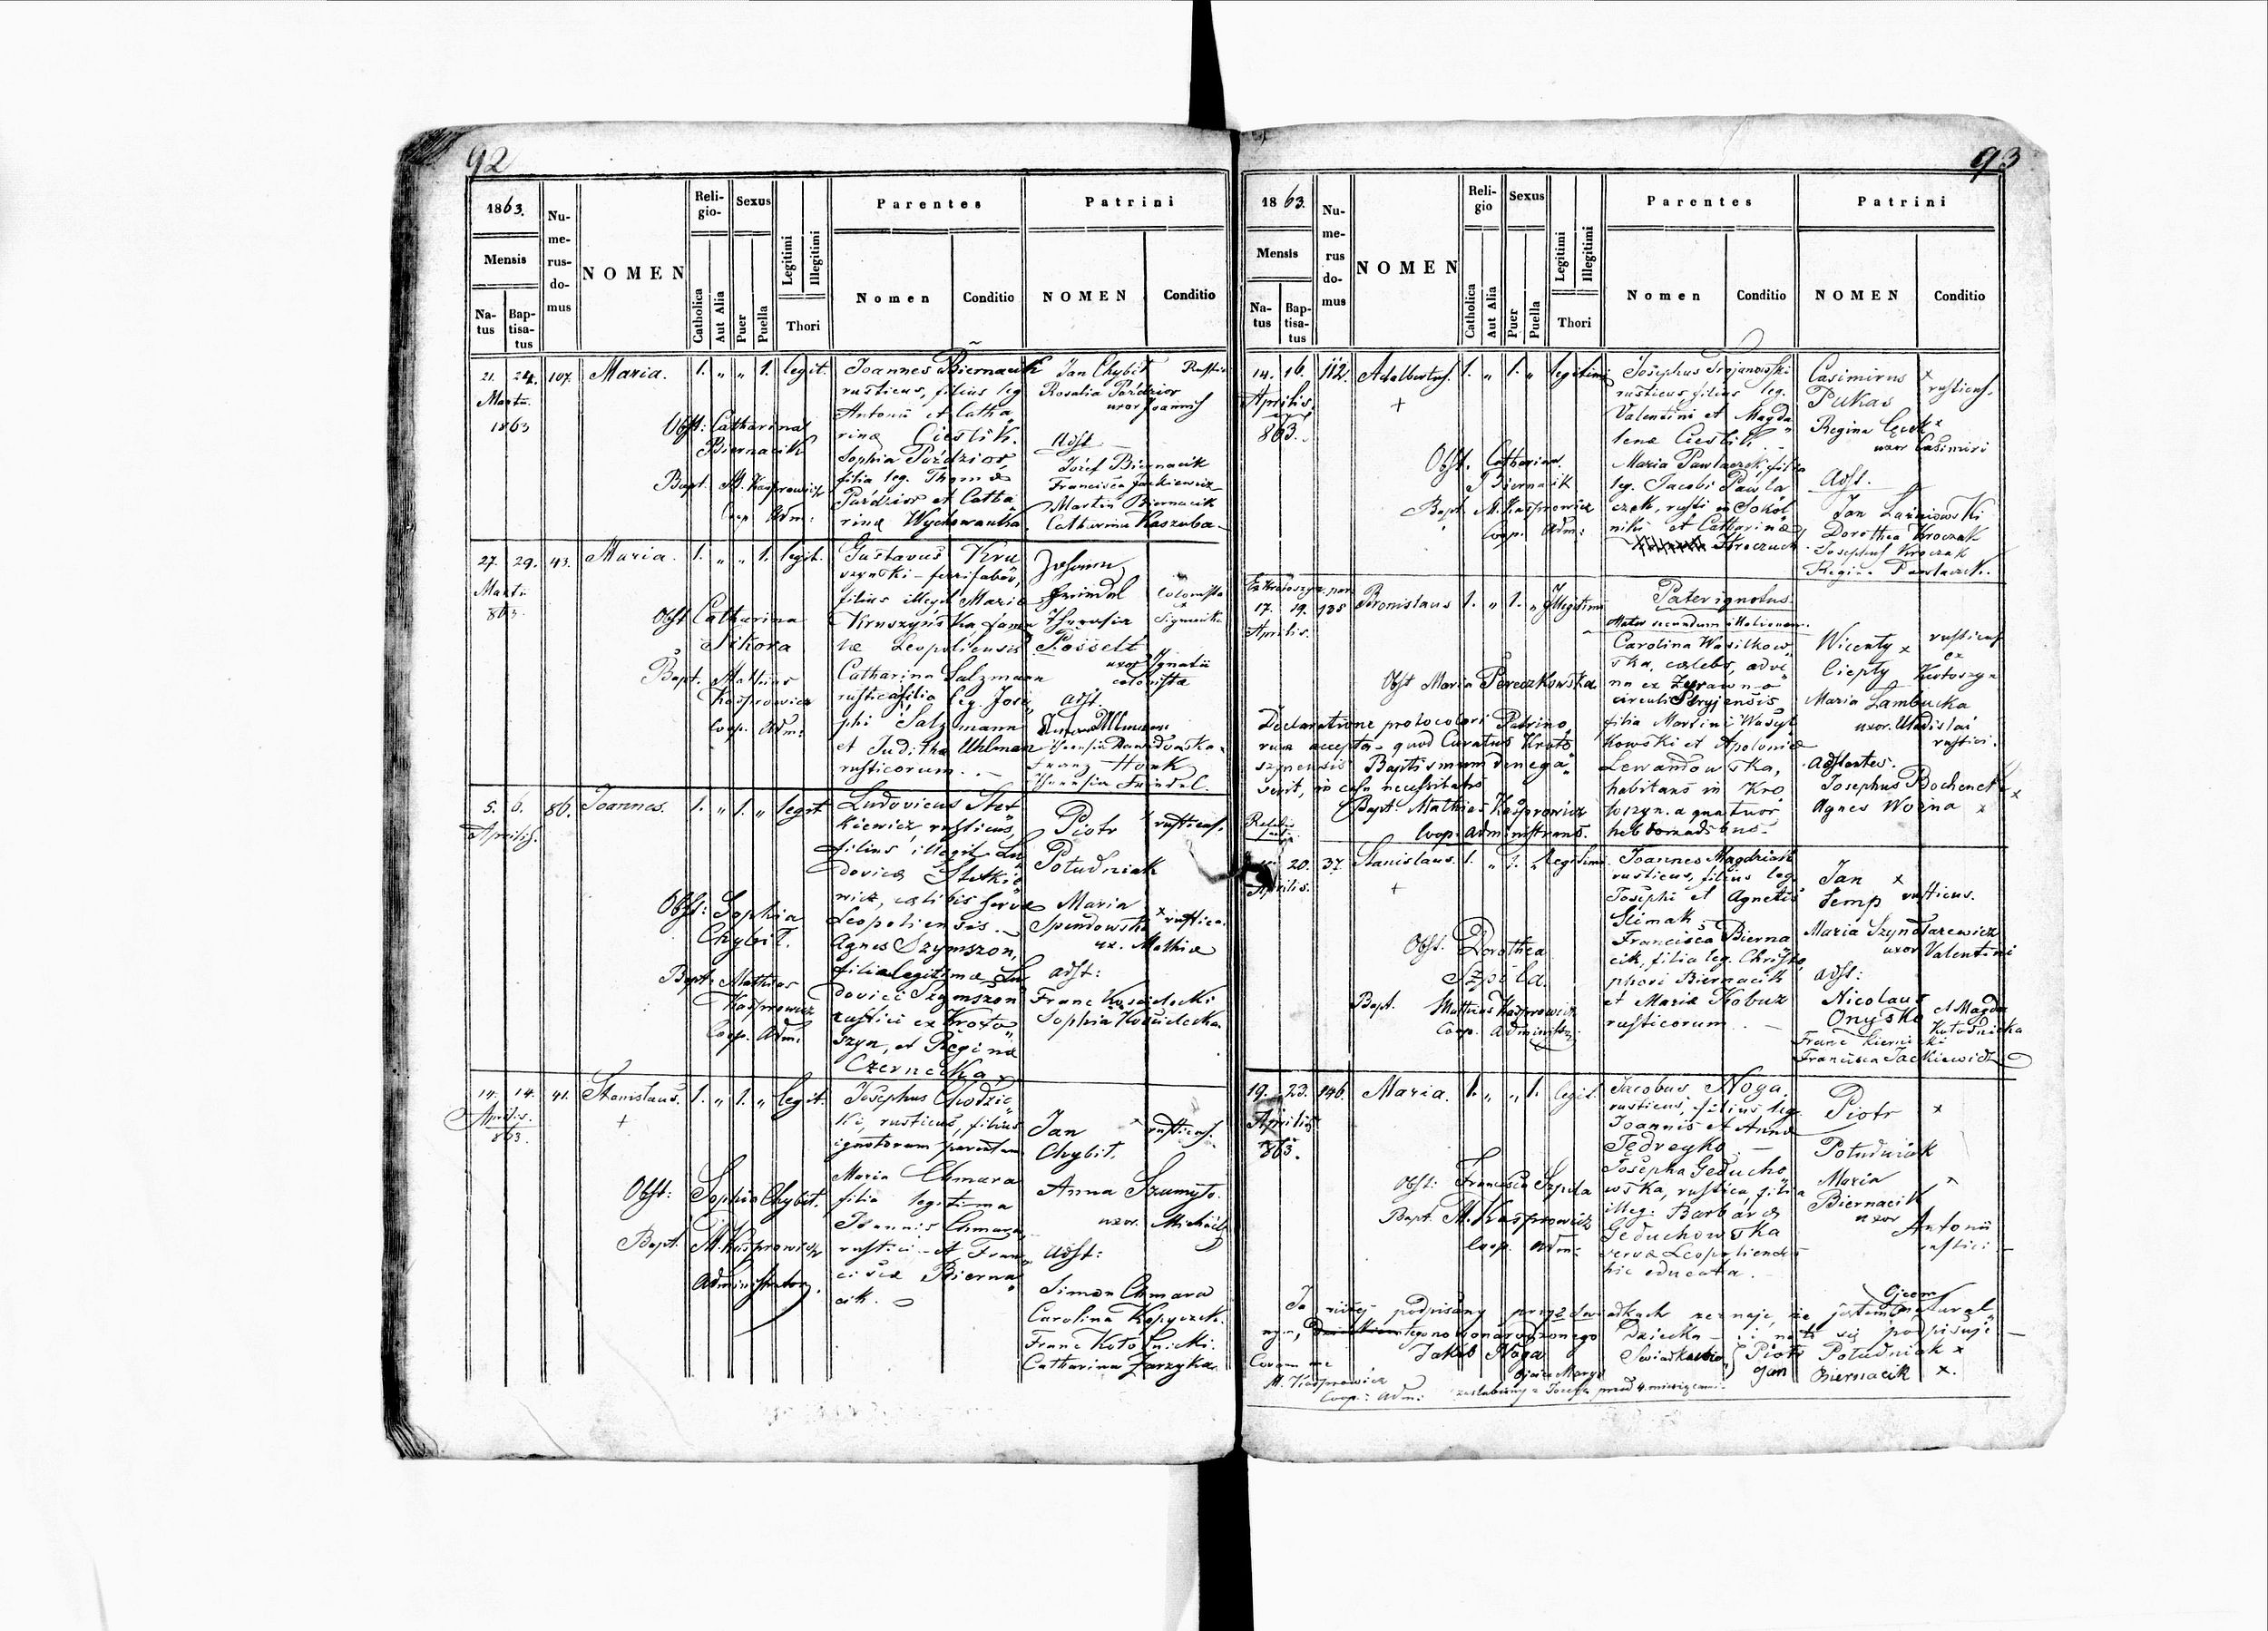 92
1863.
Mensis
Na-
tus
Bap-
tisa-
tus
Nu-
me-
rus-
do-
mus
NOMEN
Reli-
gio-
Catholica
Aut Alia
Sexus
Puer
Puella
Legitimi
Illegitimi
Thori
Parentes
Nomen
Conditio
Patrini
NOMEN
Conditio
21. 24. 107. Maria. 1. „ „ 1. legit.
Martii
1863
Obst: Catharina
Biernacik
Bapt. M. Kasprowicz
Coop. Adm:
Joannes Biernacik
rusticus, filius leg
Antonii et Catha
rinæ Cieslik.
Sophia Paździor,
filia leg. Thomæ
Paździor et Catha
rinæ Wychowanka
Jan Chybit Rustic
Rosalia Paździor
uxor Joannis
Adst
Józef Biernacik
Francisca Jackiewicz
Martin Biernacik
Catharina Kaszuba
27. 29. 43. Maria. 1. „ „ 1. legit.
Martii
863.
Obst Catharina
Sikora
Bapt. Mathias
Kasprowicz
Coop. Adm:
Gustavus Kru
szyński - ferrifaber,
filius illegit Mariæ
Kruszyńska famu
læ Leopoliensis
Catharina Salzmann
rustica, filia leg. Jose
phi Salzmann
et Juditha Uhlman
rusticorum.
Johann
Freindel colonista
Theresia
Posselt
uxor Ignatii
colonista
Adst.
Franz Honk
Theresia Freindel.
5. 6. 86. Joannes. 1. „ 1. „ legit
Aprilis.
Obst: Sophia
Chybit.
Bapt: Mathias
Kasprowicz
Coop. Adm:
Ludovicus Stet
kiewicz, rusticus,
filius illegit Lu
dovicæ Stetkie
wicz, cælibis servæ
Leopoliensis.
Agnes Szymszon,
filia legitima Lu
dovici Szymszon
rustici ex Kroto
szyn, et Reginæ
Czernecka
Piotr rusticus.
Południak
Maria
Spendowska x rustica.
ux. Mathiæ
Adst:
Franc Kosidecki
Sophia Kosidecka
14. 14. 41. Stanislaus. 1. „ 1. „ legit.
Aprilis. +
863.
Obst: Sophia Chybit.
Bapt. M. Kasprowicz
Administrator.
Josephus Chodzic
ki, rusticus, filius
ignotorum parentum
Maria Chmara
filia legitima
Joannis Chmara,
rustici et Fran
ciscæ Bierna
cik.
Jan x rusticus.
Chybit.
Anna Szumyło.
uxor. Michaelis
Adst:
Simon Chmara
Carolina Kopyczek.
Franc Kotolnicki.
Catharina Jarzyka.
93
1863.
Mensis
Na-
tus
Bap-
tisa-
tus
Nu-
me-
rus
do-
mus
NOMEN
Reli-
gio
Catholica
Aut Alia
Sexus
Puer
Puella
Legitimi
Illegitimi
Thori
Parentes
Nomen
Conditio
Patrini
NOMEN
Conditio
14. 16. 112. Adalbertus. 1. „ 1. „ legitimi
Aprilis. +
863.
Obst. Catharina
Biernacik
Bapt. M. Kasprowicz
Coop. Adm:
Josephus Trojanowski
rusticus, filius leg.
Valentini et Magda
lenæ Cieslik
Maria Pawlaczek, filia
leg. Jacobi Pawla
czek, rusti in Sokol
niki et Catharinæ
Kroczack
Casimirus x rusticus.
Pukas
Regina x
uxor Casimiri
Adst.
Jan Lazniowski
Dorothea Kroczak
Josephus Kroczak
Regina Pawlaczek.
17. 19. 135 Bronislaus 1. „ 1. „ Illegitimi
Aprilis.
Obst Maria Pereczkowska
Declaratione protocolari Patrino
rum accepta - quod Curatus Kroto
szynensis Baptismum denega
verit, in casu necessitatis
Bapt. Mathias Kasprowicz
Coop. administrans.
Pater ignotus.
Mater secundum
Carolina Wasilkow
ska, cælebs, adve
na ex Żurawno
circuli Stryjensis
filia Martini Wasyl
kowski et Apoloniæ
Lewandowska,
habitans in Kro
toszyn. a quatuor
hebdomadibus
Wicenty x rusticus
ex
Ciepły Krotoszyn
Maria Lambucka
uxor. Wladislai
rustici.
Adstantes.
Josephus Bochenek x
Agnes Wozna x
20. 37. Stanislaus. 1. „ 1. „ legitimi
Aprilis. +
Obst. Dorothea
Szpila.
Bapt. Mathias Kasprowicz
Coop. Administr:
Joannes Magdziak
rusticus, filius leg.
Josephi et Agnetis
Slimak.
Francisca Bierna
cik, filia leg. Christo
phori Biernacik
et Mariæ Kobuz
rusticorum.
Jan x
Semp rusticus.
Maria Szyndlarewicz
uxor Valentini
Adst:
Nicolaus
Onysko et Magda
Kotodnicka
Francisca Jackiewicz
19. 23. 146. Maria. 1. „ „ 1. legit.
Aprilis
863.
Obst: Francisca Szpila
Bapt. M. Kasprowicz
Coop. Adm:
Jacobus Noga,
rusticus, filius leg.
Joannis et Annæ
Jedreyko.
Josepha Geducho
wska, rustica, filia
illeg: Barbaræ
Geduchowska
servæ Leopoliensis
hic educata.
Piotr x
Południak
Maria x
Biernacik
uxor Antonii
rustici.
Ja niżej podpisany przy 2 świadkach zeznaję, że jestem Ojcem natural
nym, tego nowonarodzonego Dziecka - i na to się podpisuję
Jakób Noga Świadkowie Piotr Południak x
Ojciec Maryi Jan Biernacik x.
Coram me
M. Kasprowicz
Coop: Adm: zaślubiony z Józefą przed 4 miesiącami.